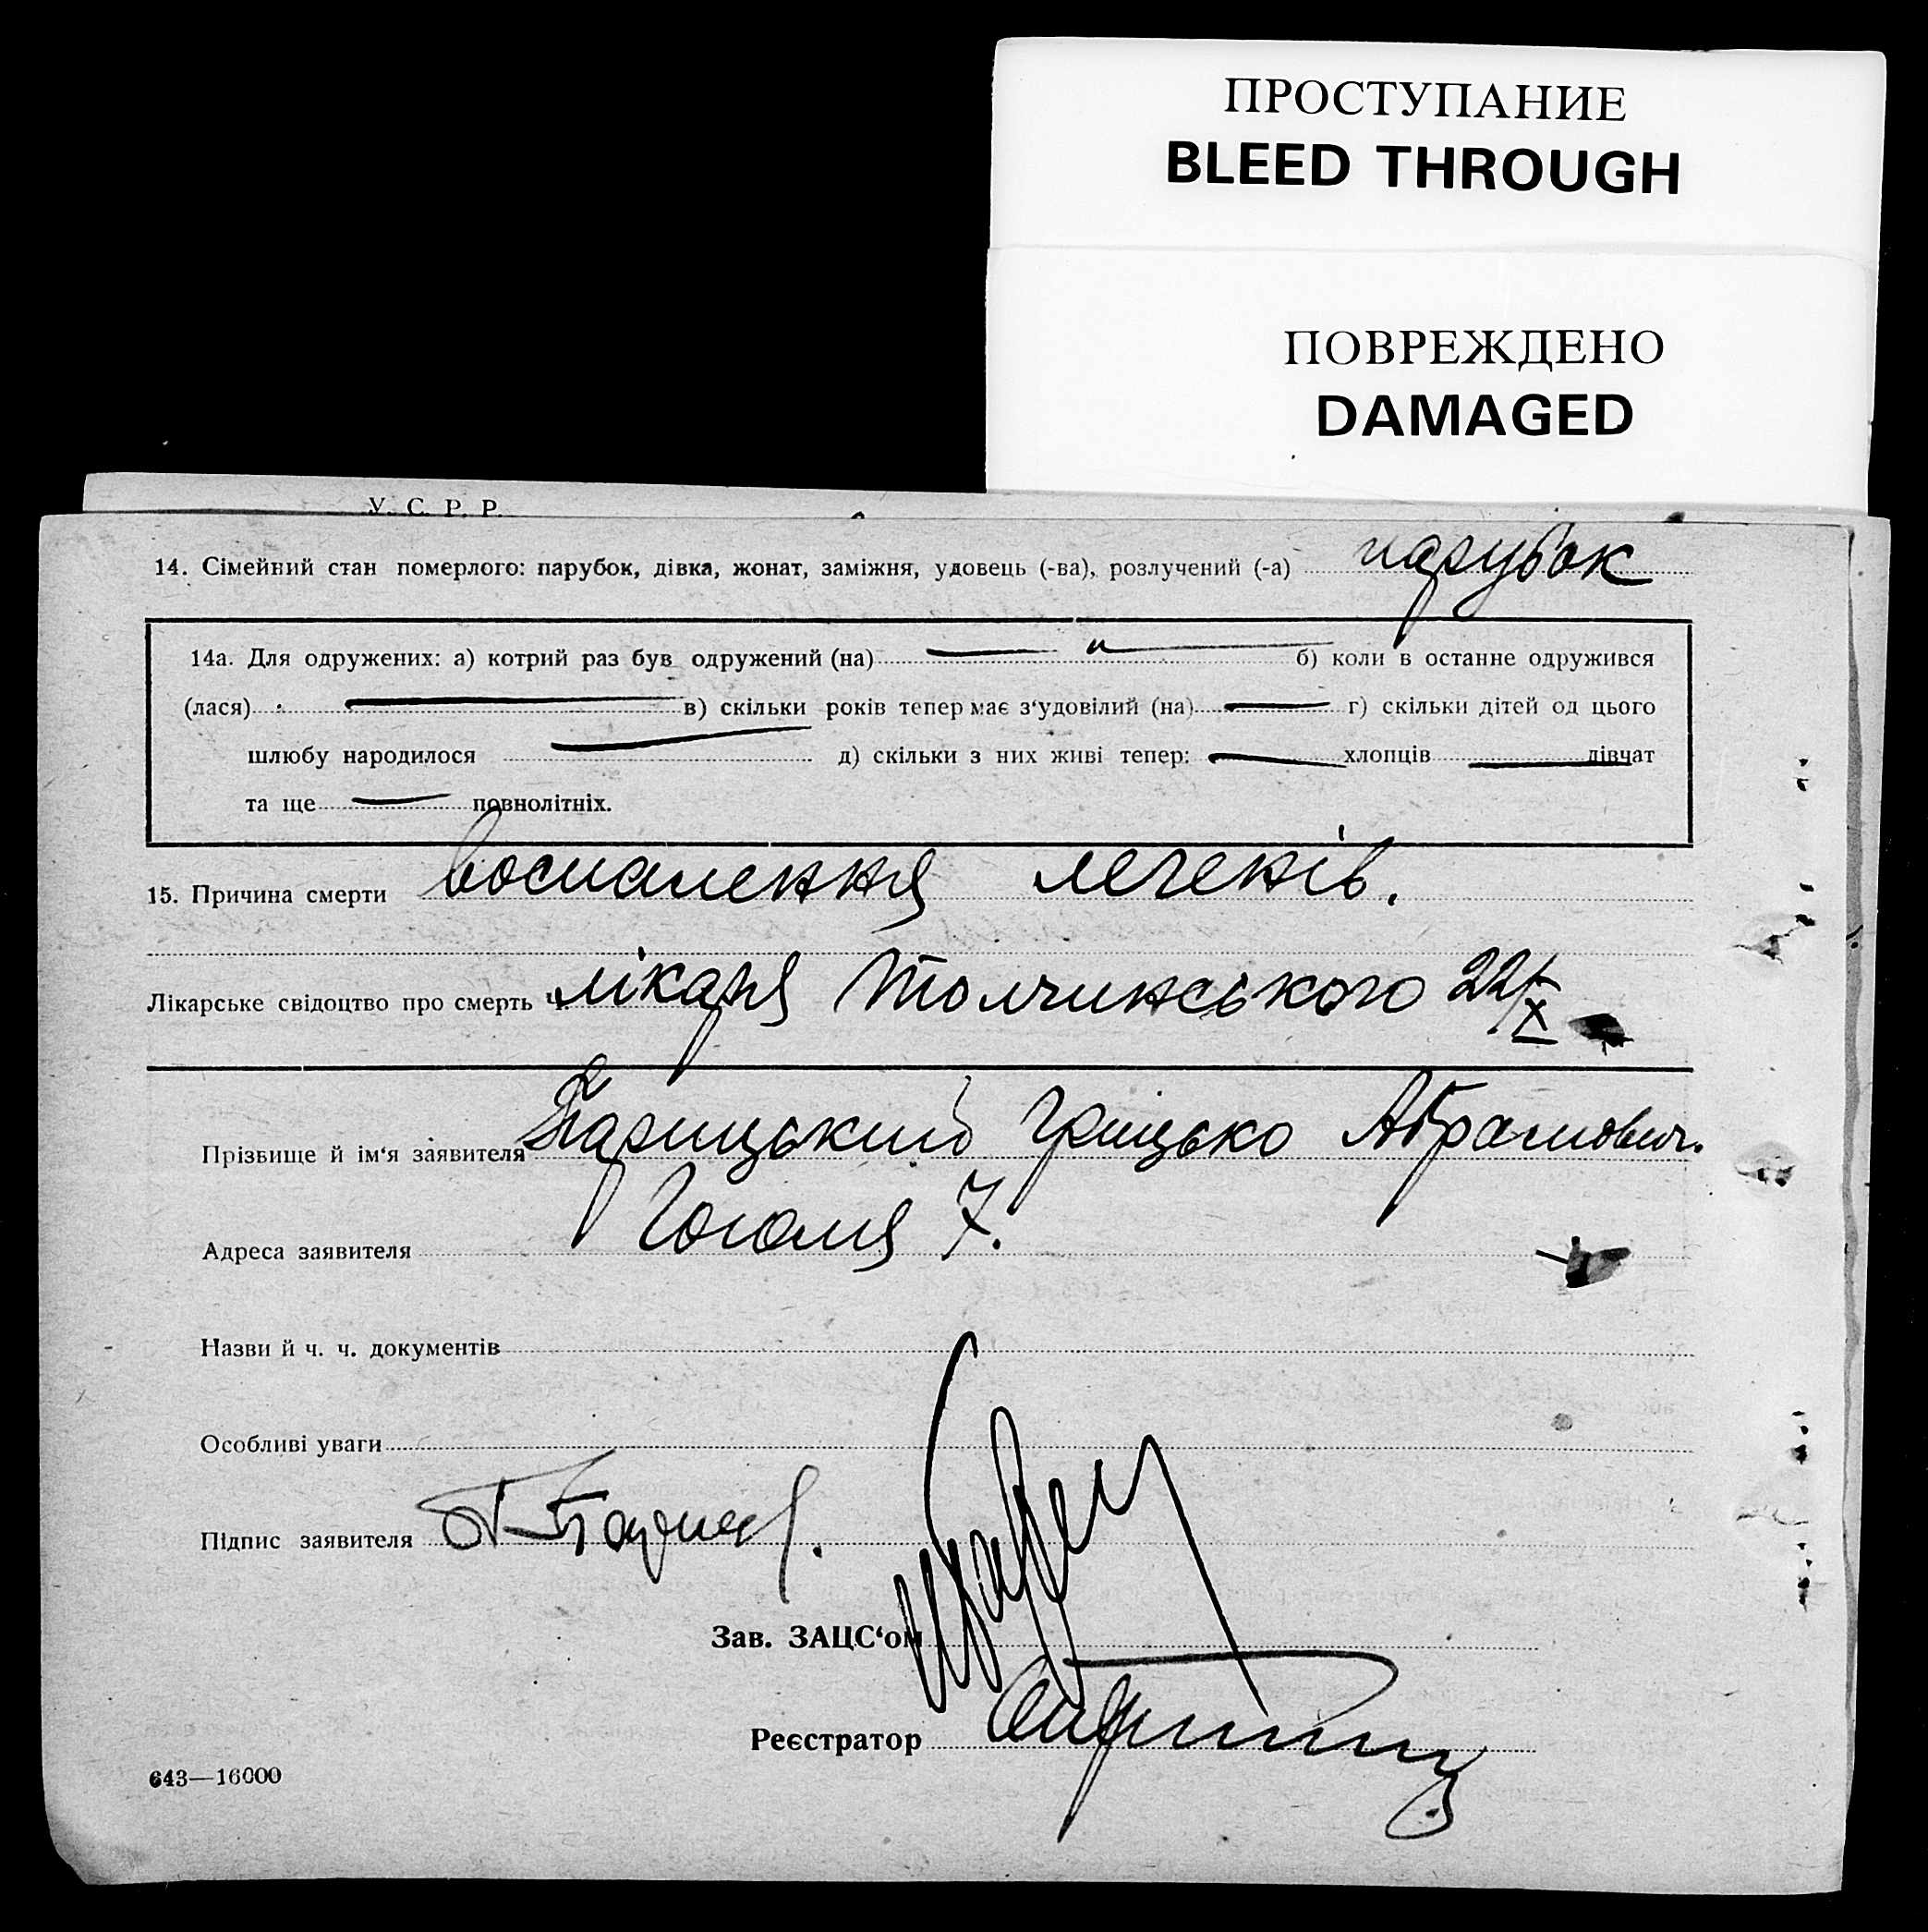 ПРОСТУПАНИЕ
BLEED THROUGH
ПОВРЕЖДЕНО
DAMAGED
У. С. Р. Р.
14. Сімейний стан померлого: парубок, дівка, жонат, заміжня, удовець (-ва), розлучений (-а) парубок
14а. Для одружених: а) котрий раз був одружений (на) б) коли в останне одружився
(лася) в) скільки років тепер має з‘удовілий (на) г) скільки дітей од цього
шлюбу народилося д) скільки з них живі тепер: хлопців дівчат
та ще повнолітніх.
15. Причина смерти воспалення легенів.
Лікарське свідоцтво про смерть ч. лікаря Толчинського 22/X
Прізвище й ім‘я заявителя Грицько Абрамович.
Адреса заявителя Гоголя 7.
Назви й ч. ч. документів
Особливі уваги
Підпис заявителя
Зав. ЗАЦС‘ом
Реєстратор
643—16000